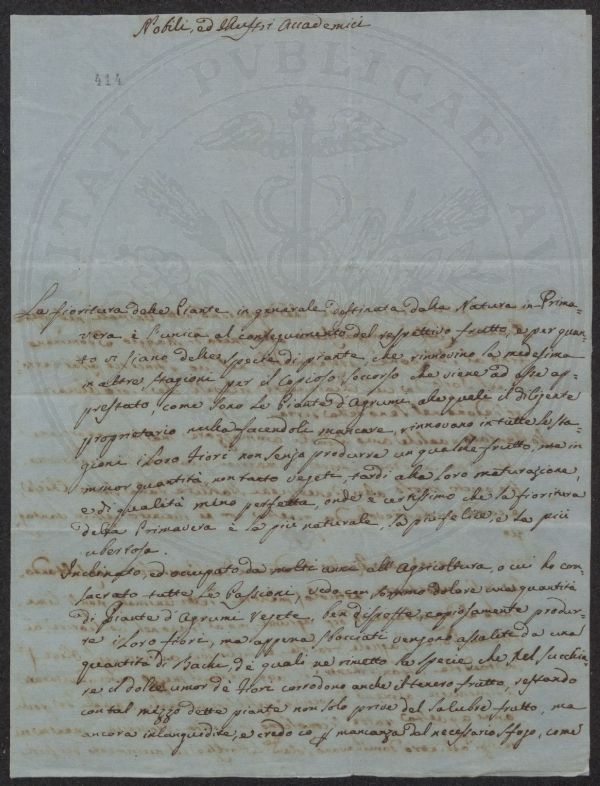 Nobili, ed Illustri Accademici
414
UTILITATI PUBLICAE
La fioritura delle Piante in generale destinata dalla Natura in Prima=
vera è l'unica al conseguimento del respettivo frutto, e per quan=
to vi siano delle specie di piante, che rinnovino la medesima
in altre stagioni per il copioso soccorso che viene ad esse ap=
prestato, come sono le Piante d'Agrumi alle quali il diligente
proprietario nulla facendoli mancare, rinnovano in tutte le sta=
gioni i loro Fiori non senza produrre un qualche frutto, ma in
minor quantità, non tanto vegeti, tardi alla loro maturazione,
e di qualità meno perfetta, onde è certissimo che la fioritura
della Primavera è la più naturale, la più felice, e la più
ubertosa.
Inclinato, ed occupato da molti anni all'Agricoltura, a cui ho con
sacrato tutte le Passioni, vedo con sommo dolore una quantità
di Piante d'Agrumi Vegete, ben disposte, copiosamente produr=
re i loro fiori, ma appena sbocciati vengono assalite da una
quantità di Bachi, de quali ne rimetto la specie, che nel succhia=
re il dolce umor de fiori corrodono anche il tenero frutto, restando
con tal mezzo dette piante non solo prive del salubre frutto, ma
ancora inlanguidite, e credo ciò p mancanza del necessario sfogo, come